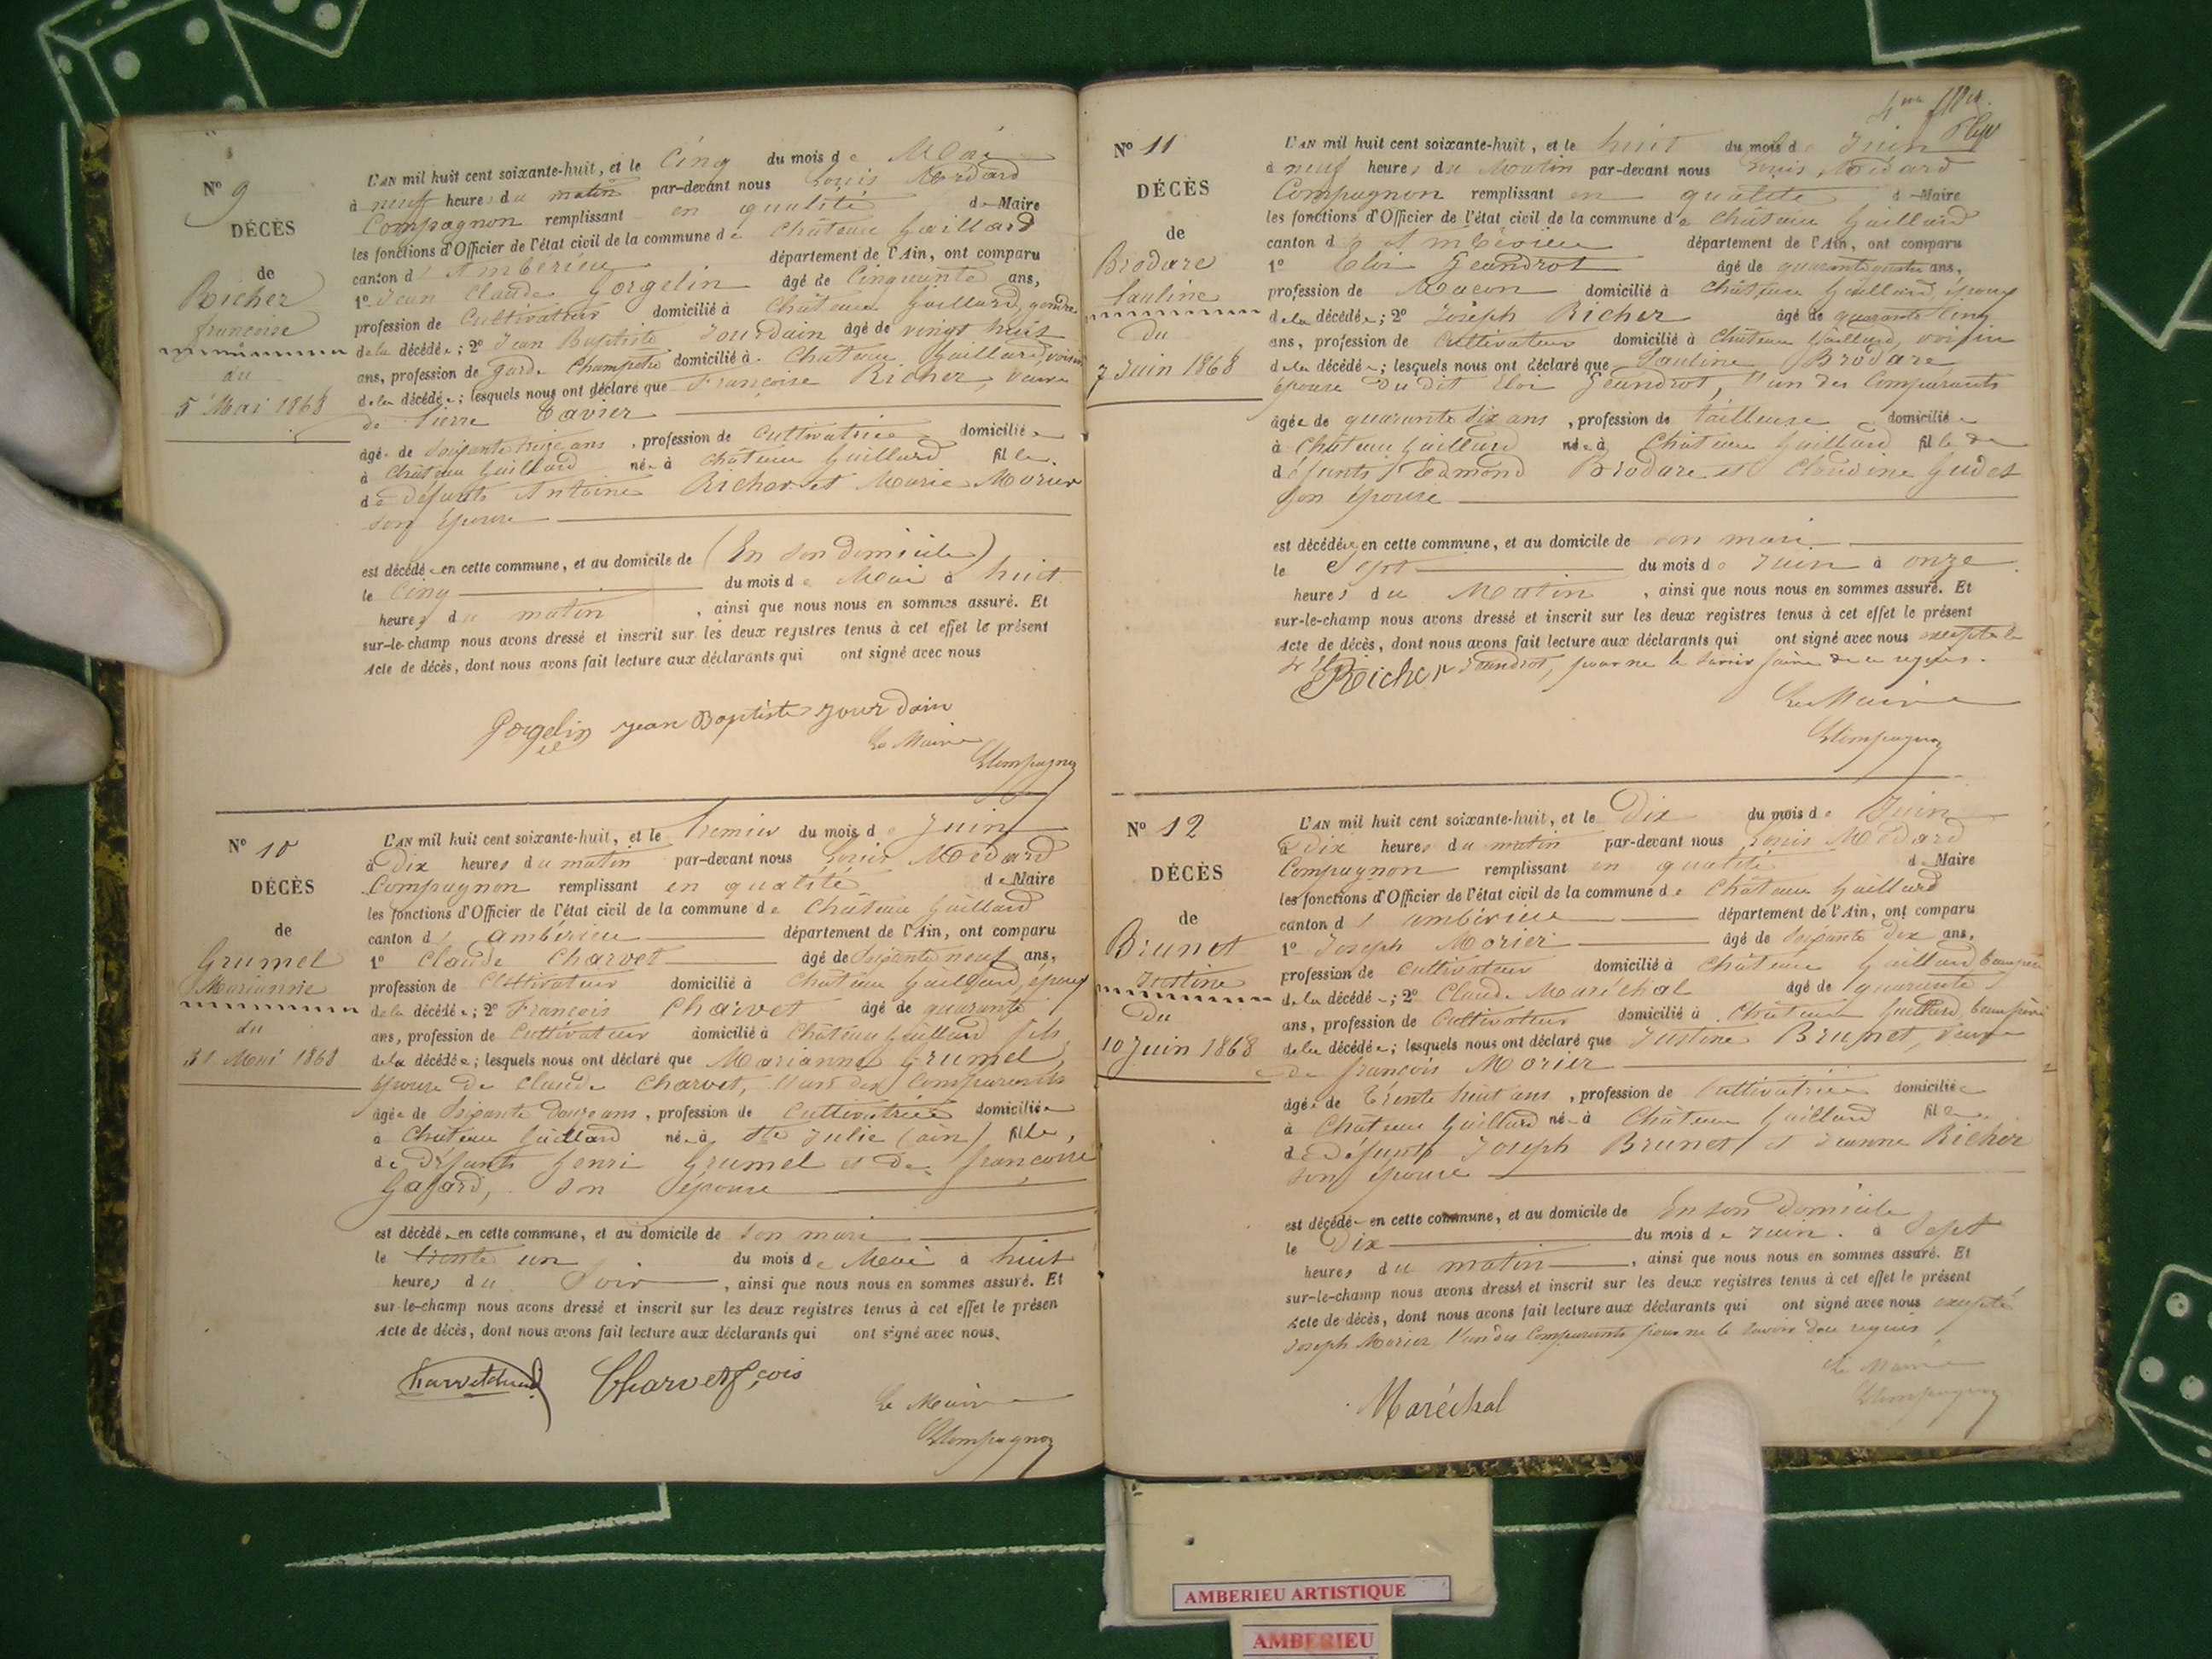 N° 9
DÉCÈS
de
Richer
francoise
du
5 Mai 1868
L'AN mil huit cent soixante-huit, et le Cinq du mois de Mai
à neuf heures du matin par-devant nous Louis Médard
Compagnon remplissant en qualité de Maire
les fonctions d'Officier de l'état civil de la commune de Château Gaillard
canton d'Ambérieu département de l'Ain, ont comparu
1° Jean Claude Gorgelin âgé de Cinquante ans,
profession de Cultivateur domicilié à Château Gaillard, gendre
de la décédée; 2° Jean Baptiste Jourdain âgé de vingt huit
ans, profession de garde Champetre domicilié à Château Gaillard, voisin
de la décédée; lesquels nous ont déclaré que Francoise Richer, veuve
de Pierre Tavier
âgée de soixante treize ans, profession de Cultivatrice domiciliée
à Château Gaillard née à Château Gaillard fille
de défunts Antoine Richer et Marie Morier
son épouse
est décédée en cette commune, et au domicile de (En son domicile)
le Cinq du mois de Mai à huit
heures du matin, ainsi que nous nous en sommes assuré. Et
sur-le-champ nous avons dressé et inscrit sur les deux registres tenus à cet effet le présent
Acte de décès, dont nous avons fait lecture aux déclarants qui ont signé avec nous
Gorgelin Jean Baptiste Jourdain
Le Maire
LCompagnon
N° 10
DÉCÈS
de
Grumel
Marianne
du
31 Mai 1868
L'AN mil huit cent soixante-huit, et le Premier du mois de Juin
à Dix heures du matin par-devant nous Louis Médard
Compagnon remplissant en qualité de Maire
les fonctions d'Officier de l'état civil de la commune de Château Gaillard
canton d'ambérieu département de l'Ain, ont comparu
1° Claude Charvet âgé de soixante neuf ans,
profession de Cultivateur domicilié à Château Gaillard, époux
de la décédée; 2° Francois Charvet âgé de quarante
ans, profession de Cultivateur domicilié à Château Gaillard fils
de la décédée; lesquels nous ont déclaré que Marianne Grumel
épouse de Claude Charvet, l'un des Comparants
âgée de soixante douze ans, profession de Cultivatrice domiciliée
à Château Gaillard née à Ste Julie (ain) fille,
de défunts henri Grumel et de francoise
son épouse
est décédée en cette commune, et au domicile de son mari
le trente un du mois de Mai à huit
heures du Soir, ainsi que nous nous en sommes assuré. Et
sur-le-champ nous avons dressé et inscrit sur les deux registres tenus à cet effet le présen
Acte de décès, dont nous avons fait lecture aux déclarants qui ont signé avec nous.
Charvet fçois
Le Maire
LCompagnon
N° 11
DÉCÈS
de
Brodare
Pauline
du
7 Juin 1868
L'AN mil huit cent soixante-huit, et le huit du mois de Juin
à neuf heures du Matin par-devant nous Louis Médard
Compagnon remplissant en qualité de Maire
les fonctions d'Officier de l'état civil de la commune de Château Gaillard
canton d'Ambérieu département de l'Ain, ont comparu
1° Eloi Geandrot âgé de quarante quatre ans,
profession de Macon domicilié à Château Gaillard, époux
de la décédée; 2° Joseph Richer âgé de quarante cinq
ans, profession de Cultivateur domicilié à Château Gaillard, voisin
de la décédée; lesquels nous ont déclaré que Pauline Brodare
épouse du dit Eloi Geandrot, l'un des Comparants
âgée de quarante dix ans, profession de tailleuse domiciliée
à Château Gaillard née à Château Gaillard fille de
défunts Edmond Brodare et Claudine Gudet
son épouse
est décédée en cette commune, et au domicile de son mari
le Sept du mois de Juin à onze
heures du Matin, ainsi que nous nous en sommes assuré. Et
sur-le-champ nous avons dressé et inscrit sur les deux registres tenus à cet effet le présent
Acte de décès, dont nous avons fait lecture aux déclarants qui ont signé avec nous excepté le
pour ne le savoir faire de ce requis.
Richer
Le Maire
LCompagnon
N° 12
DÉCÈS
de
Brunet
Justine
Du
10 Juin 1868
L'AN mil huit cent soixante-huit, et le Dix du mois de Juin
à Dix heures du matin par-devant nous Louis Médard
Compagnon remplissant en qualité de Maire
les fonctions d'Officier de l'état civil de la commune de Château Gaillard
canton d'ambérieu département de l'Ain, ont comparu
1° Joseph Morier âgé de soixante dix ans,
profession de Cultivateur domicilié à Château Gaillard beau père
de la décédée; 2° Claude Maréchal âgé de quarante
ans, profession de Cultivateur domicilié à Château Gaillard, beau frère
de la décédée; lesquels nous ont déclaré que Justine Brunet, veuve
de francois Morier
âgée de trente huit ans, profession de Cultivatrice domiciliée
à Château Gaillard née à Château Gaillard fille
de défunts Joseph Brunet et Jeanne Richer
son épouse
est décédée en cette commune, et au domicile de En son Domicile
le Dix du mois de Juin. à Sept
heures du matin, ainsi que nous nous en sommes assuré. Et
sur-le-champ nous avons dressé et inscrit sur les deux registres tenus à cet effet le présent
Acte de décès, dont nous avons fait lecture aux déclarants qui ont signé avec nous excepté
Joseph Morier l'un des Comparants pour ne le savoir de ce requis
Le Maire
LCompagnon
Maréchal
AMBERIEU ARTISTIQUE
AMBERIEU